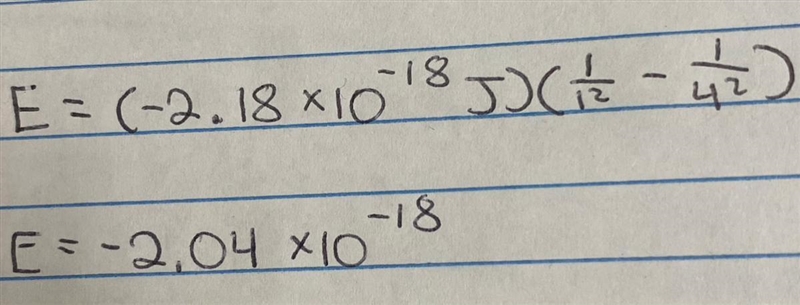 E = (-2.18 ×10⁻¹⁸ J)(1/1² - 1/4²)
E = -2.04 ×10⁻¹⁸